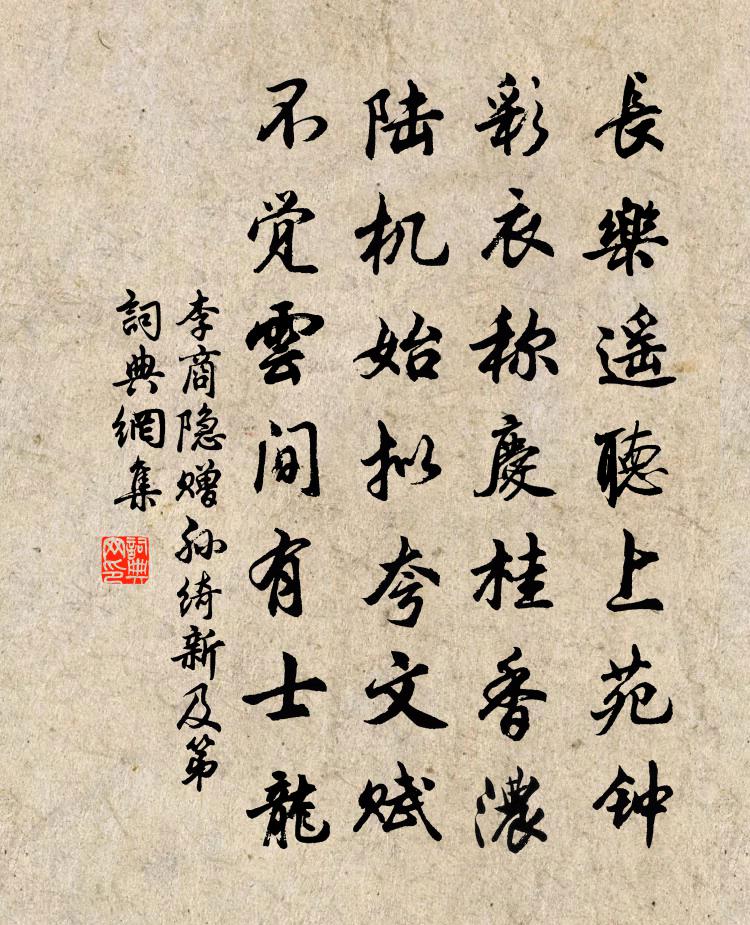 長樂遥聽上苑钟
彩衣称慶桂香濃
陆机始拟夸文赋
不觉雲间有士龍
李商隐赠孙绮新及第
詞典網集
詞典网印